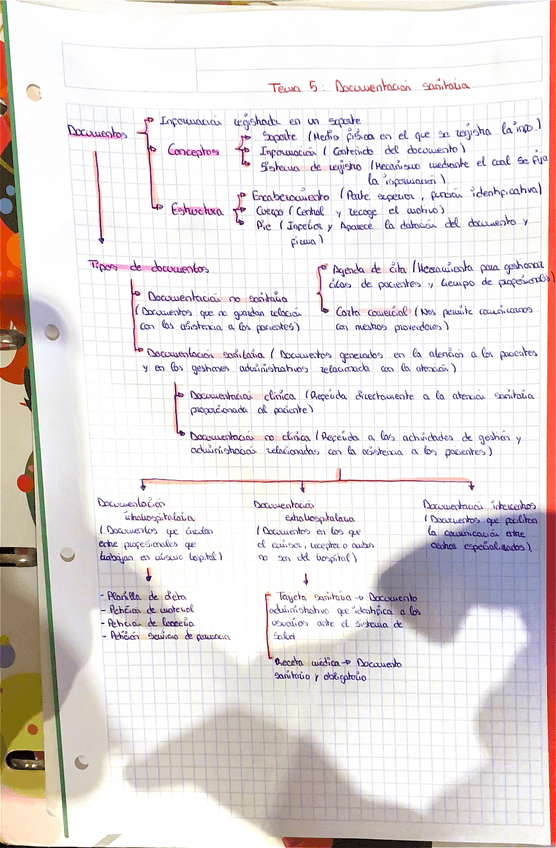 Tema 5: Documentación sanitaria
Documentos
Información registrada en un soporte
Conceptos
Soporte (Medio físico en el que se registra la info.)
Información (Contenido del documento)
Sistema de registro (Mecanismo mediante el cual se fija
la información)
Estructura
Encabezamiento (Parte superior, función identificativa)
Cuerpo (Central y recoge el motivo)
Pie (Inferior y Aparece la datación del documento y
firma)
Tipos de documentos
Documentación no sanitaria
(Documentos que no guardan relación
con las asistencia a los pacientes)
Agenda de cita (Herramienta para gestionar
citas de pacientes y tiempo de profesionales)
Carta comercial (Nos permite comunicarnos
con nuestros proveedores)
Documentación sanitaria (Documentos generados en la atención a los pacientes
y en las gestiones administrativas relacionada con la atención)
Documentación clínica (Referida directamente a la atención sanitaria
proporcionada al paciente)
Documentación no clínica (Referida a las actividades de gestión y
administración relacionadas con la asistencia a los pacientes)
Documentación
intrahospitalaria
(Documentos que circulan
entre profesionales que
trabajan en mismo hospital)
- Planilla de dieta
- Petición de material
- Petición de lencería
- Petición servicio de farmacia
Documentación
extrahospitalaria
(Documentos en los que
el emisor, receptor o ambos
no son del hospital)
Tarjeta sanitaria → Documento
administrativo que identifica a los
usuarios ante el sistema de
salud
Receta médica → Documento
sanitario y obligatorio
Documentación intercentros
(Documentos que facilitan
la comunicación entre
centros especializados)